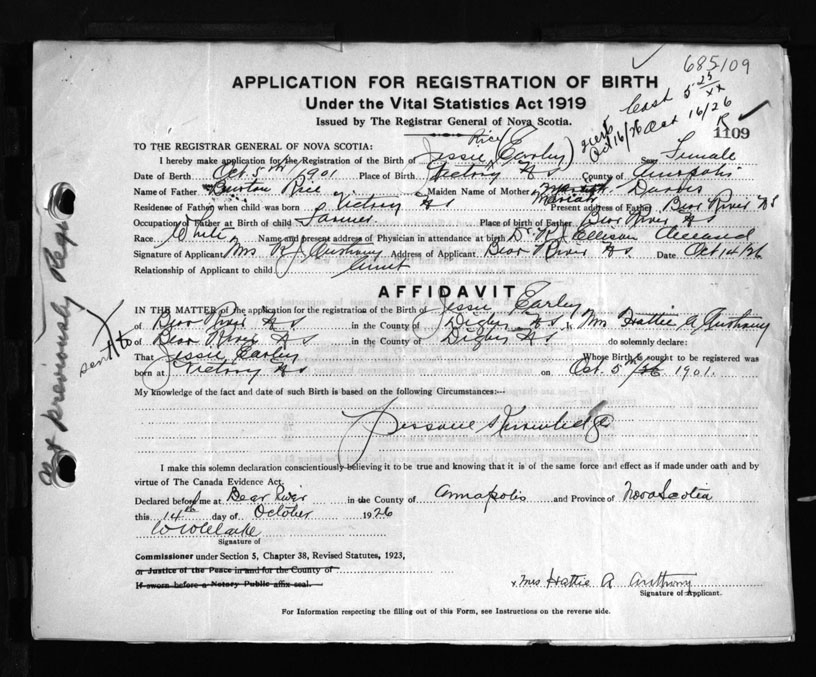 685109
APPLICATION FOR REGISTRATION OF BIRTH
Under the Vital Statistics Act 1919
Issued by The Registrar General of Nova Scotia.
Cert Oct 16/26
1109
TO THE REGISTRAR GENERAL OF NOVA SCOTIA:
Rice
I hereby make application for the Registration of the Birth of Jessie (Earley) Sex Female
Date of Birth Oct 5th 1901 Place of Birth Victory N S County of Annapolis
Name of Father Burton Rice Maiden Name of Mother Mariah Davis
Mariah
Residence of Father when child was born Victory N S Present address of Father Bear River N S
Occupation of Father at Birth of child Farmer Place of birth of Father Bear River N S
Race White Name and present address of Physician in attendance at birth Dr R J Ellison deceased
Signature of Applicant Mrs R J Anthony Address of Applicant Bear River N S Date Oct 14/26
Relationship of Applicant to child Aunt
AFFIDAVIT
IN THE MATTER of the application for the registration of the Birth of Jessie Earley
of Bear River N S in the County of Digby N S I, Mrs Hattie A Anthony
of Bear River N S in the County of Digby N S do solemnly declare:
That Jessie Earley Whose Birth is sought to be registered was
born at Victory N S on Oct 5th 1901.
My knowledge of the fact and date of such Birth is based on the following Circumstances:—
Personal Knowledge
I make this solemn declaration conscientiously believing it to be true and knowing that it is of the same force and effect as if made under oath and by
virtue of The Canada Evidence Act.
Declared before me at Bear River in the County of Annapolis and Province of Nova Scotia
this 14th day of October 1926
Signature of
Commissioner under Section 5, Chapter 38, Revised Statutes, 1923,
or Justice of the Peace in and for the County of
If sworn before a Notary Public affix seal.
x Mrs Hattie A Anthony
Signature of Applicant.
For Information respecting the filling out of this Form, see Instructions on the reverse side.
Not previously Regd
sent